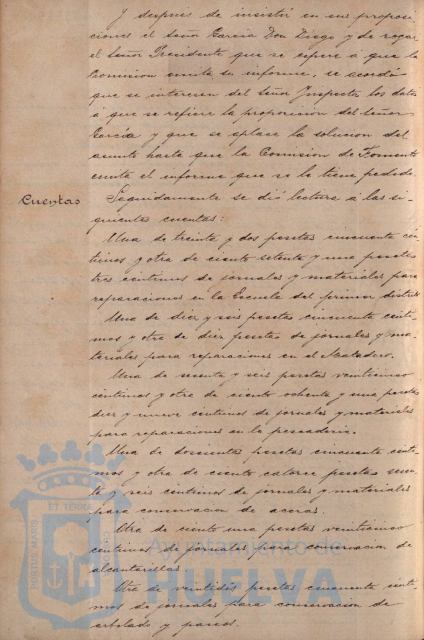 Y después de insistir en sus proposi-
ciones el Señor García Don Diego y de rogar
el Señor Presidente que se espere á que la
Comision emita su informe, se acordó
que se interesen del Señor Inspector los datos
á que se refiere la proposición del Señor
García y que se aplace la solucion del
asunto hasta que la Comision de Fomento
emita el informe que se le tiene pedido.
Cuentas
Seguidamente se dió lectura á las si-
guientes cuentas:
Una de treinta y dos pesetas cincuenta cén-
timos y otra de ciento setenta y una pesetas
tres centimos de jornales y materiales para
reparaciones en la Escuela del primer distrito
Una de diez y seis pesetas cincuenta centi-
mos y otra de diez pesetas de jornales y ma-
teriales para reparaciones en el Matadero.
Una de y seis pesetas veinticinco
centimos y otra de ciento ochenta y una pesetas
diez y nueve centimos de jornales y materiales
para reparaciones en la pescaderia.
Una de doscientas pesetas cincuenta centi-
mos y otra de ciento catorce pesetas
y seis centimos de jornales y materiales
para conservacion de aceras.
Otra de ciento una pesetas veinticinco
centimos de jornales para conservacion de
alcantarillas
Otra de veintidos pesetas cincuenta centi-
mos de jornales para conservacion de
arbolado y paseos.
PORTUS MARIS ET TERRÆ CUSTODIA
Ayuntamiento de
HUELVA